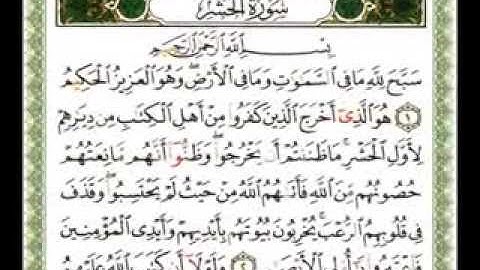 سُورَةُ الحَشْرِ
بِسْمِ اللَّهِ الرَّحْمَٰنِ الرَّحِيمِ
سَبَّحَ لِلَّهِ مَا فِي السَّمَٰوَٰتِ وَمَا فِي الْأَرْضِ ۖ وَهُوَ الْعَزِيزُ الْحَكِيمُ
١ هُوَ الَّذِي أَخْرَجَ الَّذِينَ كَفَرُوا مِنْ أَهْلِ الْكِتَٰبِ مِن دِيَٰرِهِمْ
لِأَوَّلِ الْحَشْرِ ۚ مَا ظَنَنتُمْ أَن يَخْرُجُوا ۖ وَظَنُّوا أَنَّهُم مَّانِعَتُهُمْ
حُصُونُهُم مِّنَ اللَّهِ فَأَتَىٰهُمُ اللَّهُ مِنْ حَيْثُ لَمْ يَحْتَسِبُوا ۖ وَقَذَفَ
فِي قُلُوبِهِمُ الرُّعْبَ ۚ يُخْرِبُونَ بُيُوتَهُم بِأَيْدِيهِمْ وَأَيْدِي الْمُؤْمِنِينَ
فَاعْتَبِرُوا يَٰأُولِي الْأَبْصَٰرِ ٢ وَلَوْلَا أَن كَتَبَ اللَّهُ عَلَيْهِمُ